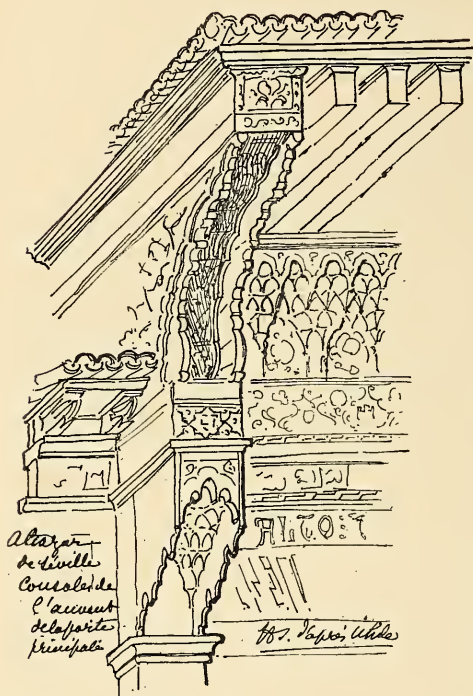 ALTO:
Alcazar
de Séville
Consoles de
l'auvent
de la porte
principale
d'après Uhde